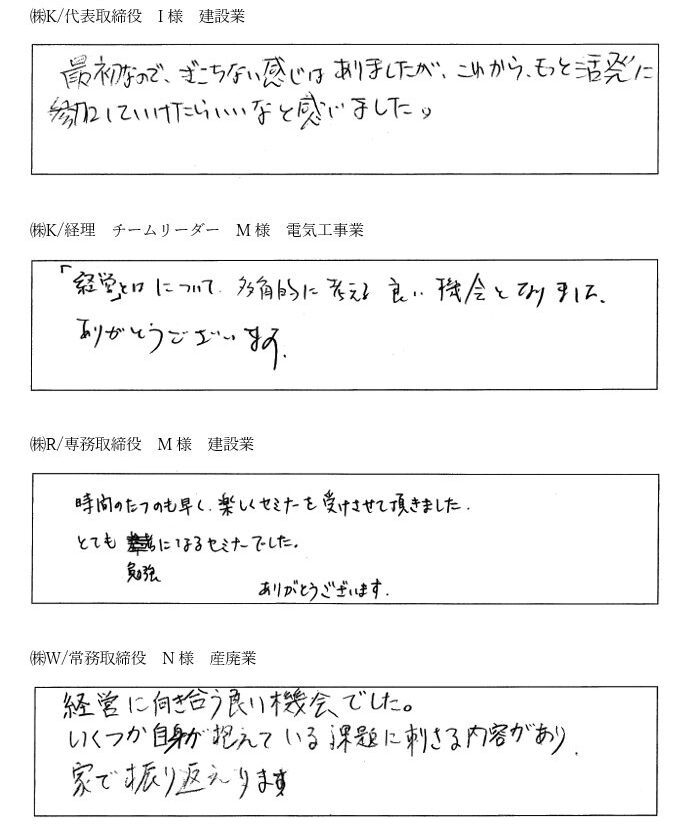 ㈱K/代表取締役　I 様　建設業
最初なので、ぎこちない感じはありましたが、これから、もっと活発に
参加していけたらいいなと感じました
㈱K/経理　チームリーダー　M 様　電気工事業
「経営」とは について、多角的に 考える 良い 機会となりました。
ありがとうございます。
㈱R/専務取締役　M 様　建設業
時間のたつのも早く、楽しくセミナーを受けさせて頂きました。
とても になるセミナーでした。
勉強
ありがとうございます。
㈱W/常務取締役　N 様　産廃業
経営に向き合う良い機会でした。
いくつか自身が抱えている課題に刺さる内容があり、
家で振り返えります